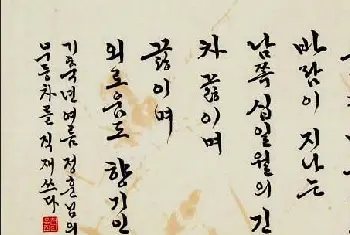 바람이 지나는
남쪽 십일월의 긴
차 끓이며
끓이며
외로움도 향기인
기축년 여름 정훈님의
무등차를 직재 쓰다